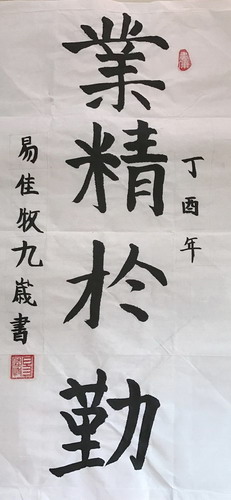 丁酉年
業精於勤
易佳牧九歲書